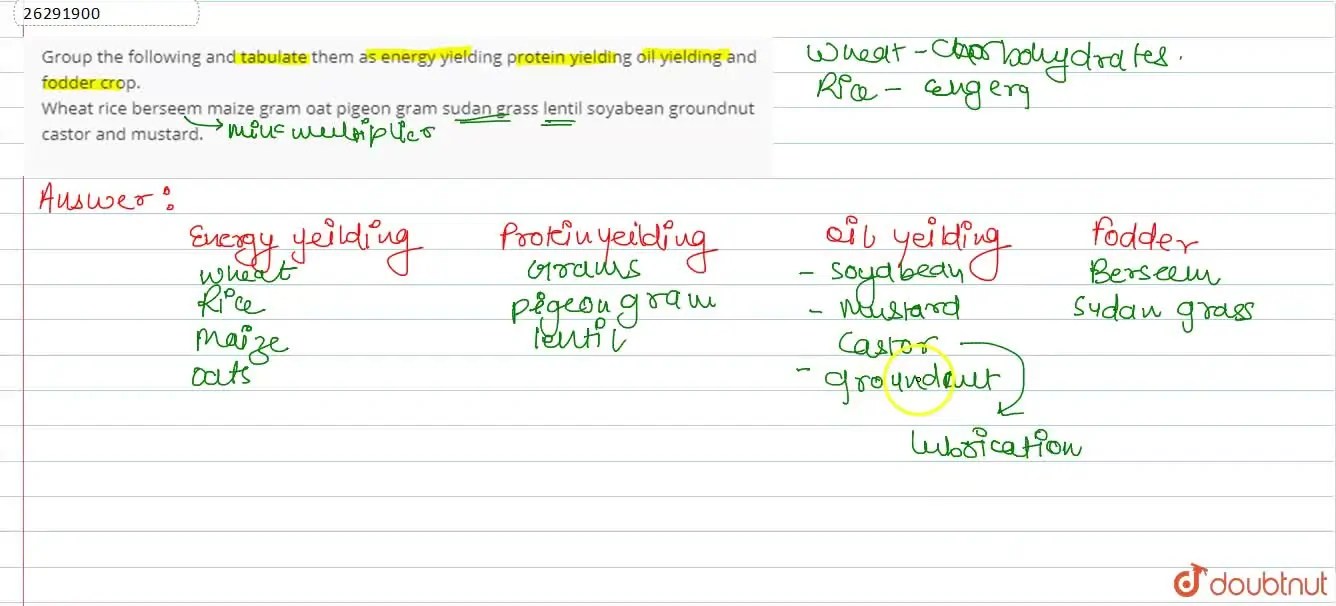 26291900
Group the following and tabulate them as energy yielding protein yielding oil yielding and
fodder crop.
Wheat rice berseem maize gram oat pigeon gram sudan grass lentil soyabean groundnut
castor and mustard.
milk multiplier
Wheat - Carbohydrates.
Rice - engerg
Answer:
Energy yeilding Protinyeilding oil yeilding fodder
wheat Grams - soyabean Berseem
Rice pigeon gram - Mustard Sudan grass
Maize lentil Castor
oats - groundnut
lubrication
doubtnut